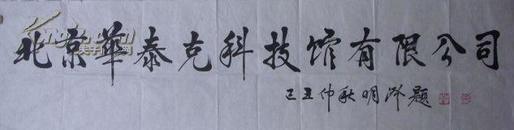 北京華泰克科技馆有限公司
己丑仲秋明泽题